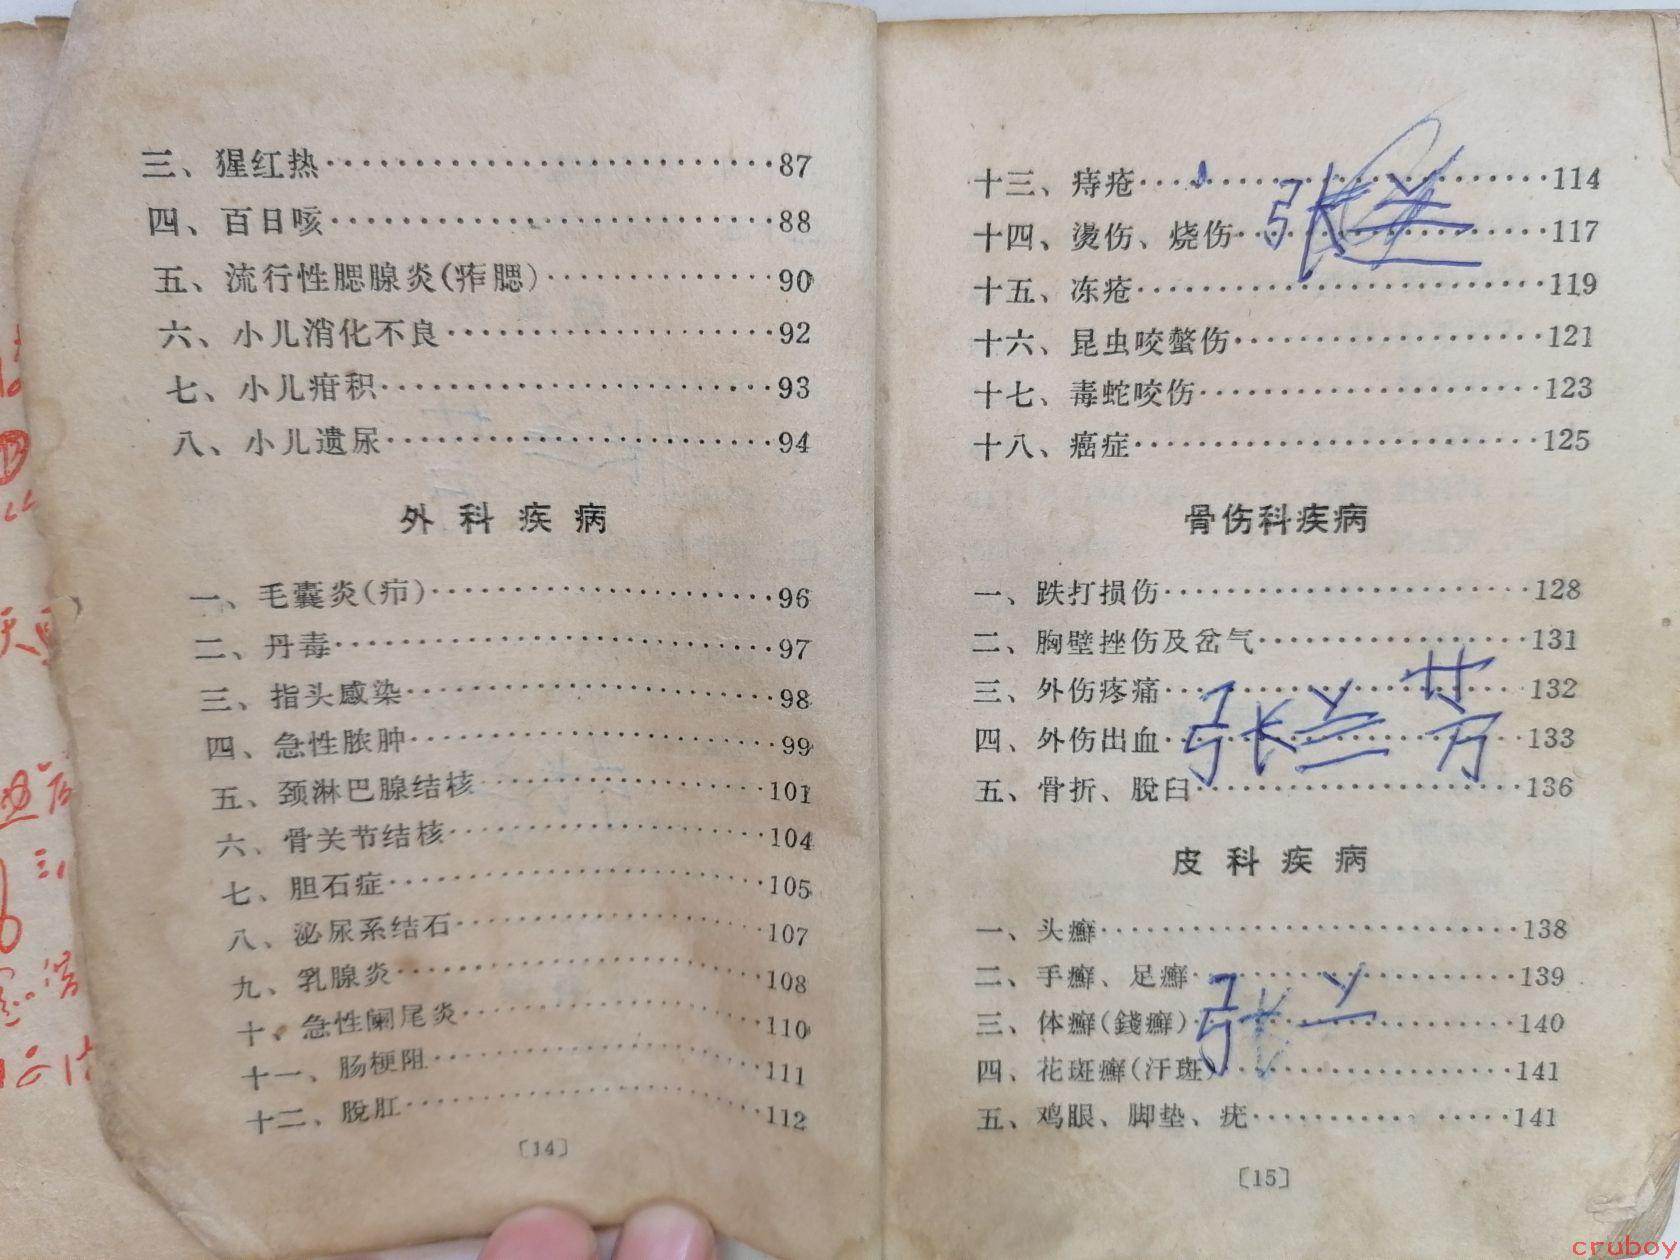 三、猩红热……87
四、百日咳……88
五、流行性腮腺炎(痄腮)……90
六、小儿消化不良……92
七、小儿疳积……93
八、小儿遗尿……94
外科疾病
一、毛囊炎(疖)……96
二、丹毒……97
三、指头感染……98
四、急性脓肿……99
五、颈淋巴腺结核……101
六、骨关节结核……104
七、胆石症……105
八、泌尿系结石……107
九、乳腺炎……108
十、急性阑尾炎……110
十一、肠梗阻……111
十二、脱肛……112
〔14〕
十三、痔疮……114
十四、烫伤、烧伤……117
张兰
十五、冻疮……119
十六、昆虫咬螫伤……121
十七、毒蛇咬伤……123
十八、癌症……125
骨伤科疾病
一、跌打损伤……128
二、胸壁挫伤及岔气……131
三、外伤疼痛……132
张兰芳
四、外伤出血……133
五、骨折、脱臼……136
皮科疾病
一、头癣……138
二、手癣、足癣……139
张
三、体癣(錢癣)……140
四、花斑癣(汗斑)……141
五、鸡眼、脚垫、疣……141
〔15〕
cruboy